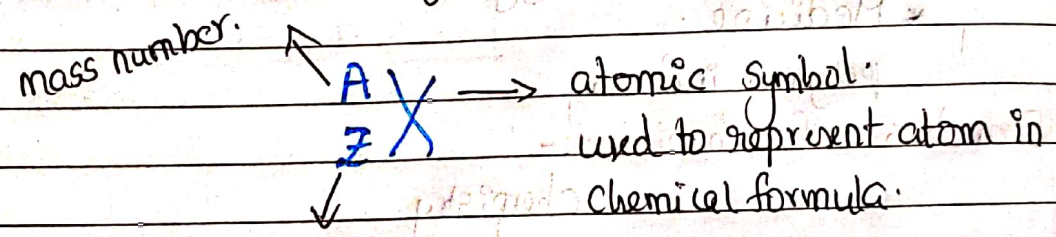 mass number.
A X → atomic symbol.
Z used to represent atom in
chemical formula.